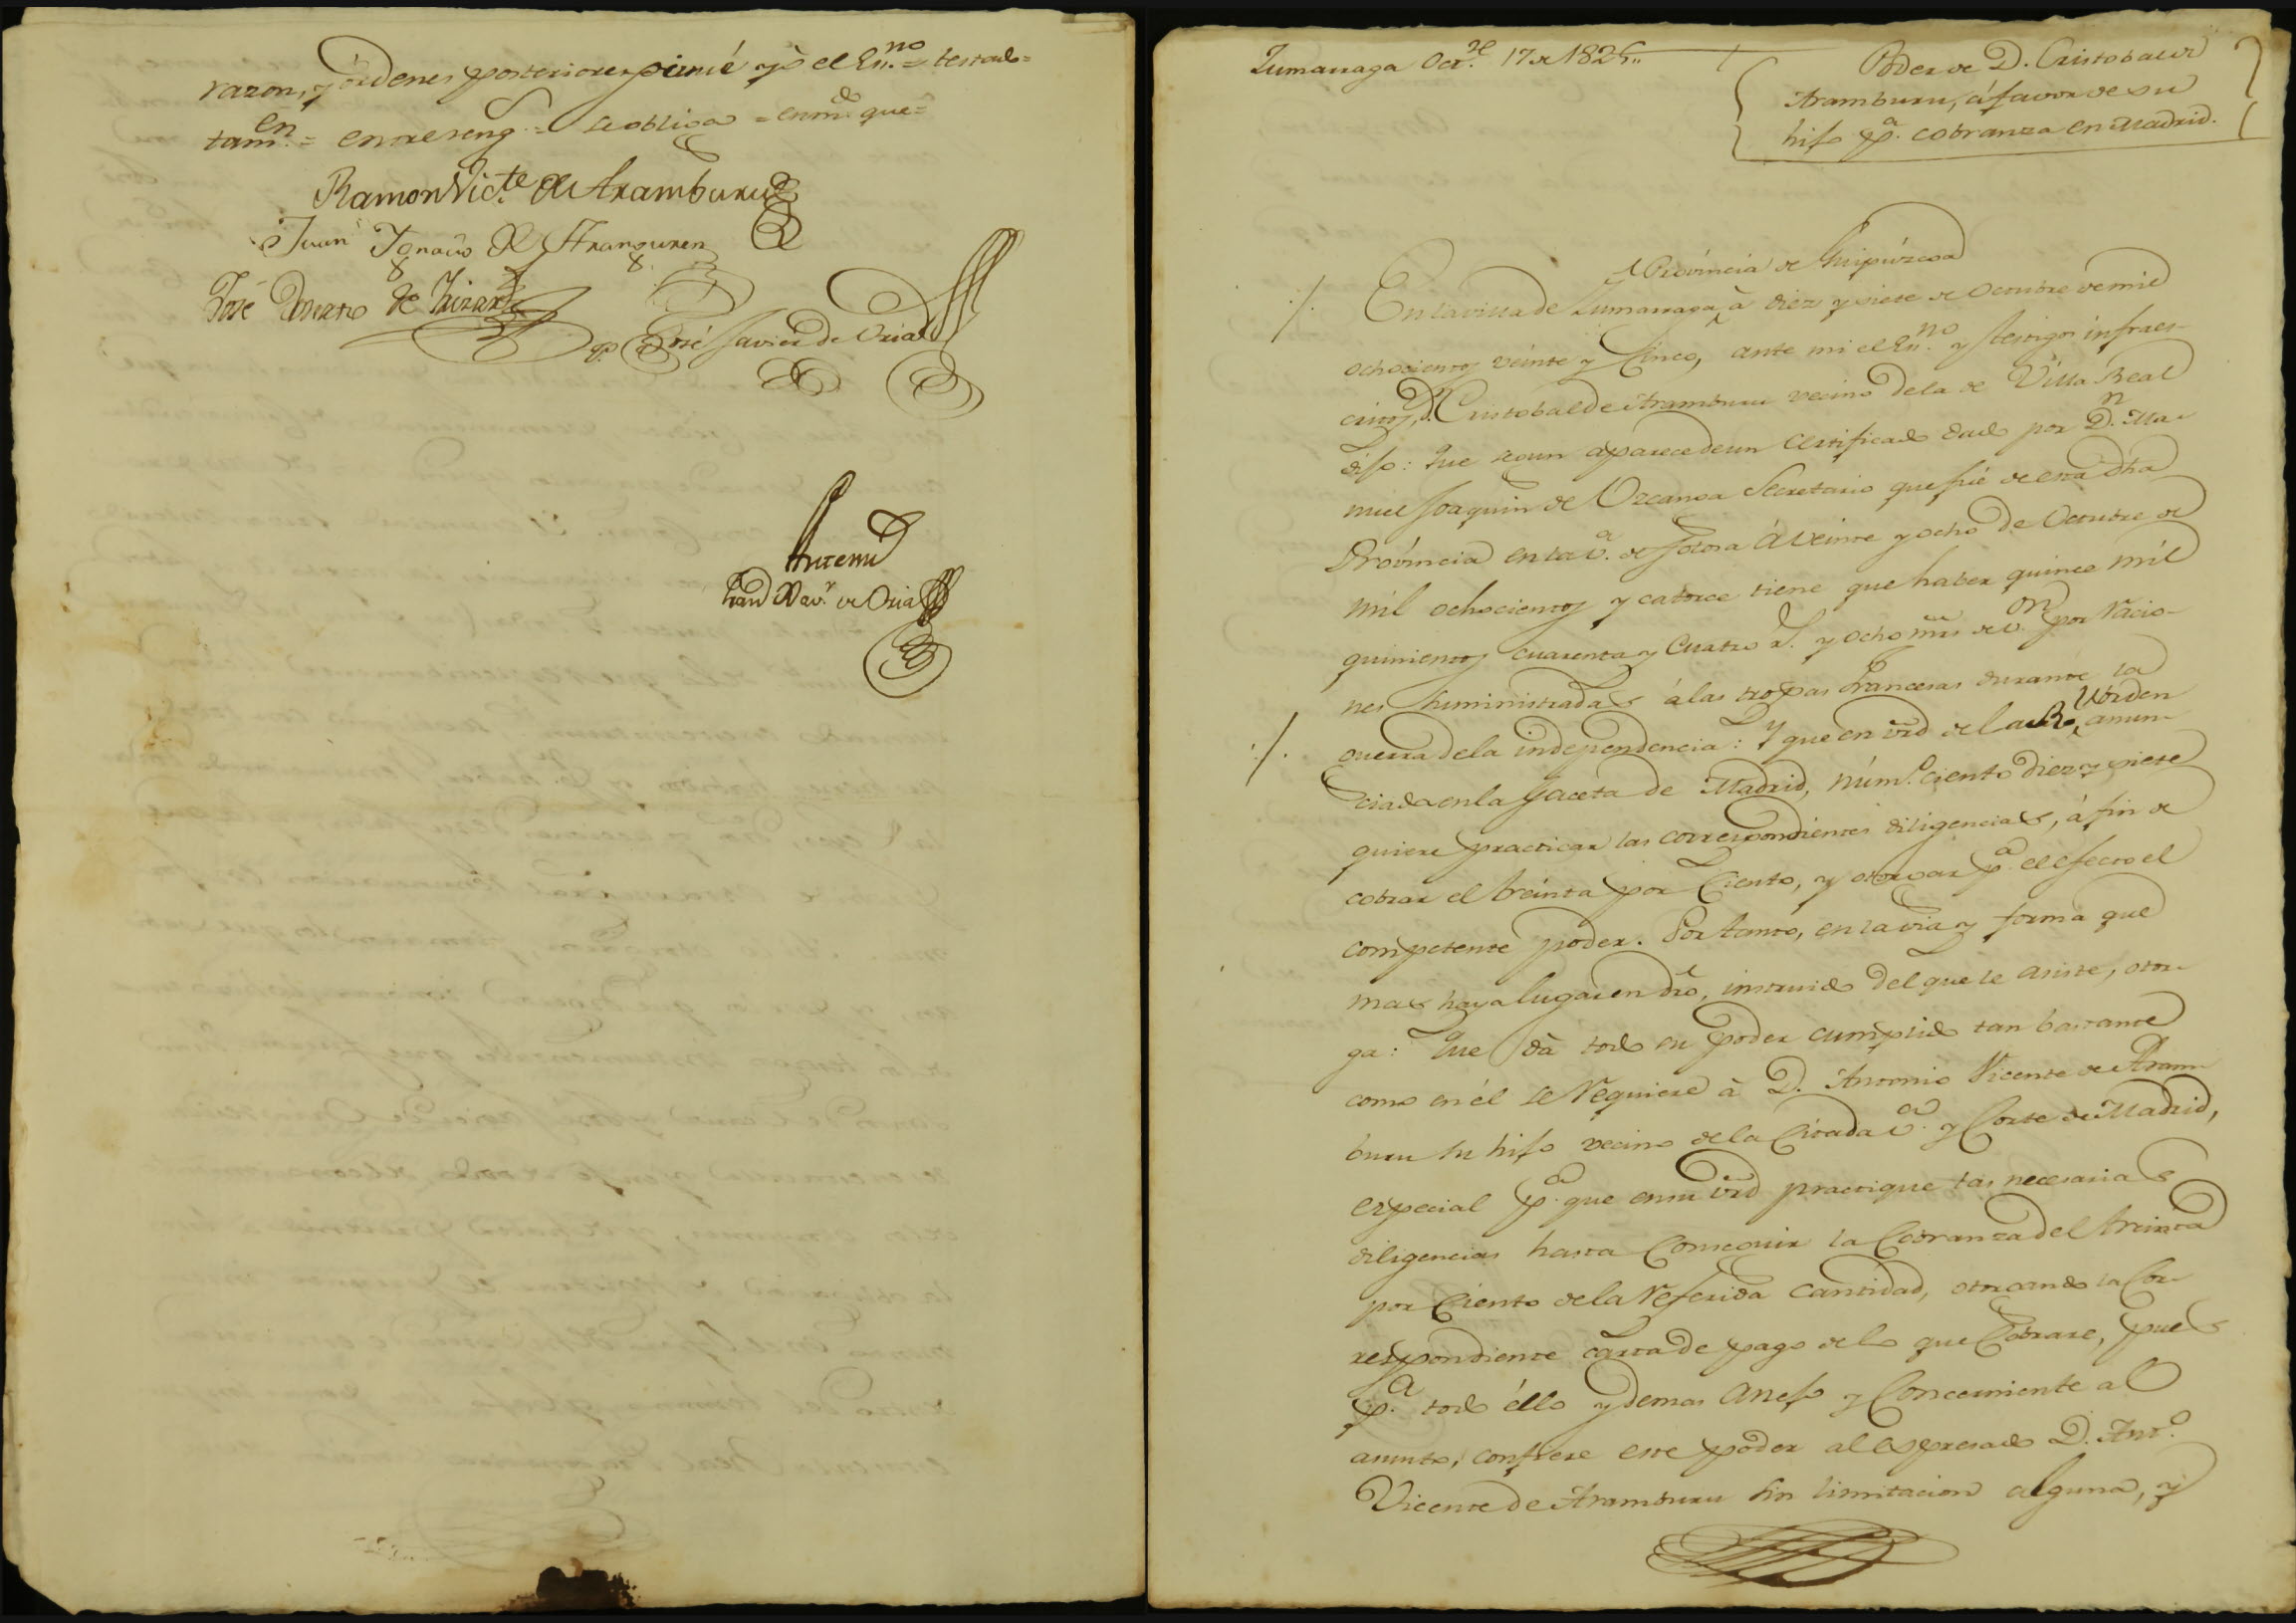 razon, y órdenes posteriores firmé yò el Ess.no = testad=
tam.en = entreseng.s = se obliga = enm.do que=
Ramon Vic.te de Aramburu
Juan Ignacio de Aranguren
José Donato de
José Javier de Oria
Antemi
Fran.co Xav.r de Oria
Zumarraga Oct.re 17 de 1825..
Poder de D. Cristobal de
Aramburu, á favor de su
hijo p.a cobranza en Madrid.
Provincia de Guipúzcoa
En la villa de Zumarraga, à diez y siete de Octubre de mil
ochocientos veinte y Cinco, ante mi el Ess.no y testigos infraes-
critos, D.n Cristobal de Aramburu vecino de la de Villa Real
dijo: Que segun aparece de un Certificado dado por D.n Ma-
nuel Joaquin de Uzcanga Secretario que fué de esta dha
Provincia en la V.a de Tolosa á veinte y ocho de Octubre de
mil ochocientos y catorce tiene que haber quince mil
quinientos cuarenta y Cuatro r.s y ocho mrs de v.on por racio-
nes suministradas á las tropas francesas durante la
guerra de la independencia: Y que en vrd de la Rl órden anun-
ciada en la Gaceta de Madrid, núm.o ciento diez y siete
quiere practicar las correspondientes diligencias, á fin de
cobrar el treinta por Ciento, y otorgar p.a el efecto el
competente poder. Por tanto, en la via y forma que
mas haya lugar en dro, instruido del que le asiste, otor-
ga: Que dà todo su poder cumplido tan bastante
como en él se requiere à D. Antonio Vicente de Aram-
buru su hijo vecino de la Citada V.a y Corte de Madrid,
especial p.a que en su vrd practique las necesarias
diligencias hasta Conseguir la Cobranza del treinta
por Ciento de la referida Cantidad, otorgando la Cor-
respondiente carta de pago de lo que Cobrare, pues
p.a todo éllo y demas anejo y Concerniente al
asunto, confiere este poder al espresado D. Ant.o
Vicente de Aramburu sin limitacion alguna, y